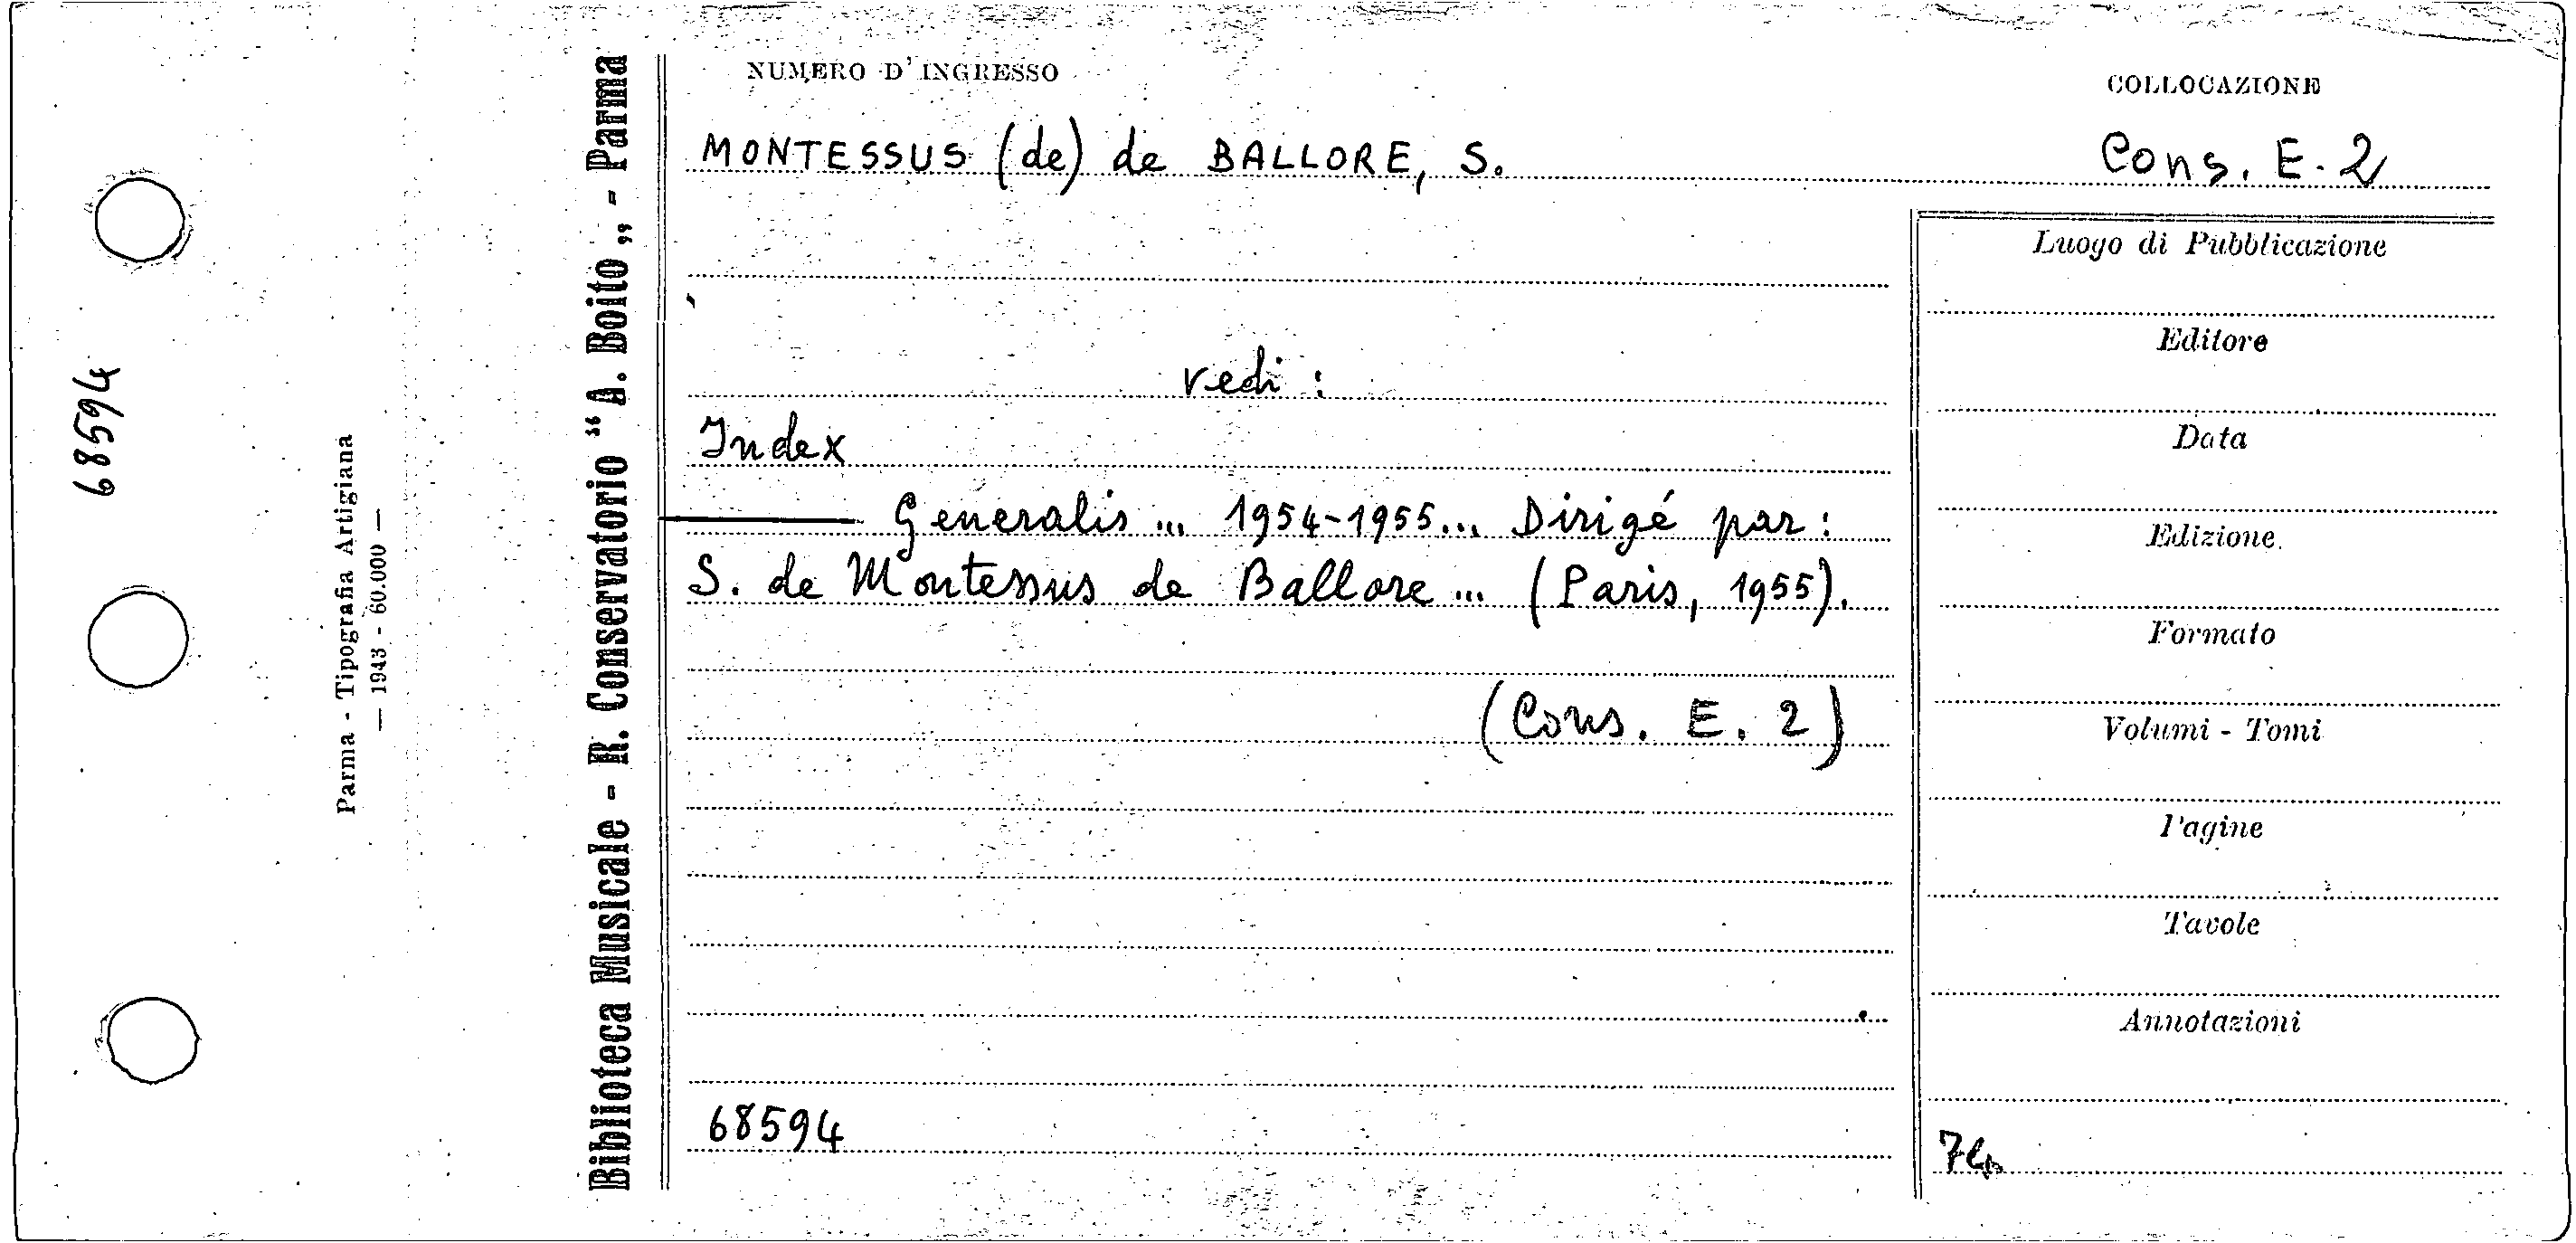 68594
Parma - Tipografia Artigiana
— 1943 - 60.000 —
Biblioteca Musicale - R. Conservatorio “A. Boito„ - Parma
NUMERO D'INGRESSO
COLLOCAZIONE
MONTESSUS (de) de BALLORE, S.
Cons. E. 2
vedi :
Index
Generalis ... 1954-1955... Dirigé par :
S. de Montessus de Ballore ... (Paris, 1955).
(Cons. E. 2)
68594
Luogo di Pubblicazione
Editore
Data
Edizione
Formato
Volumi - Tomi
Pagine
Tavole
Annotazioni